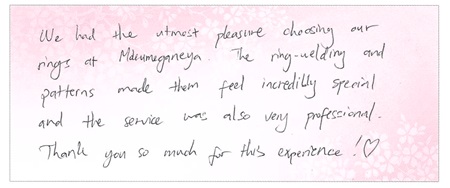 We had the utmost pleasure choosing our
rings at Mokumeganeya. The ring-welding and
patterns made them feel incredibly special
and the service was also very professional.
Thank you so much for this experience! ♡